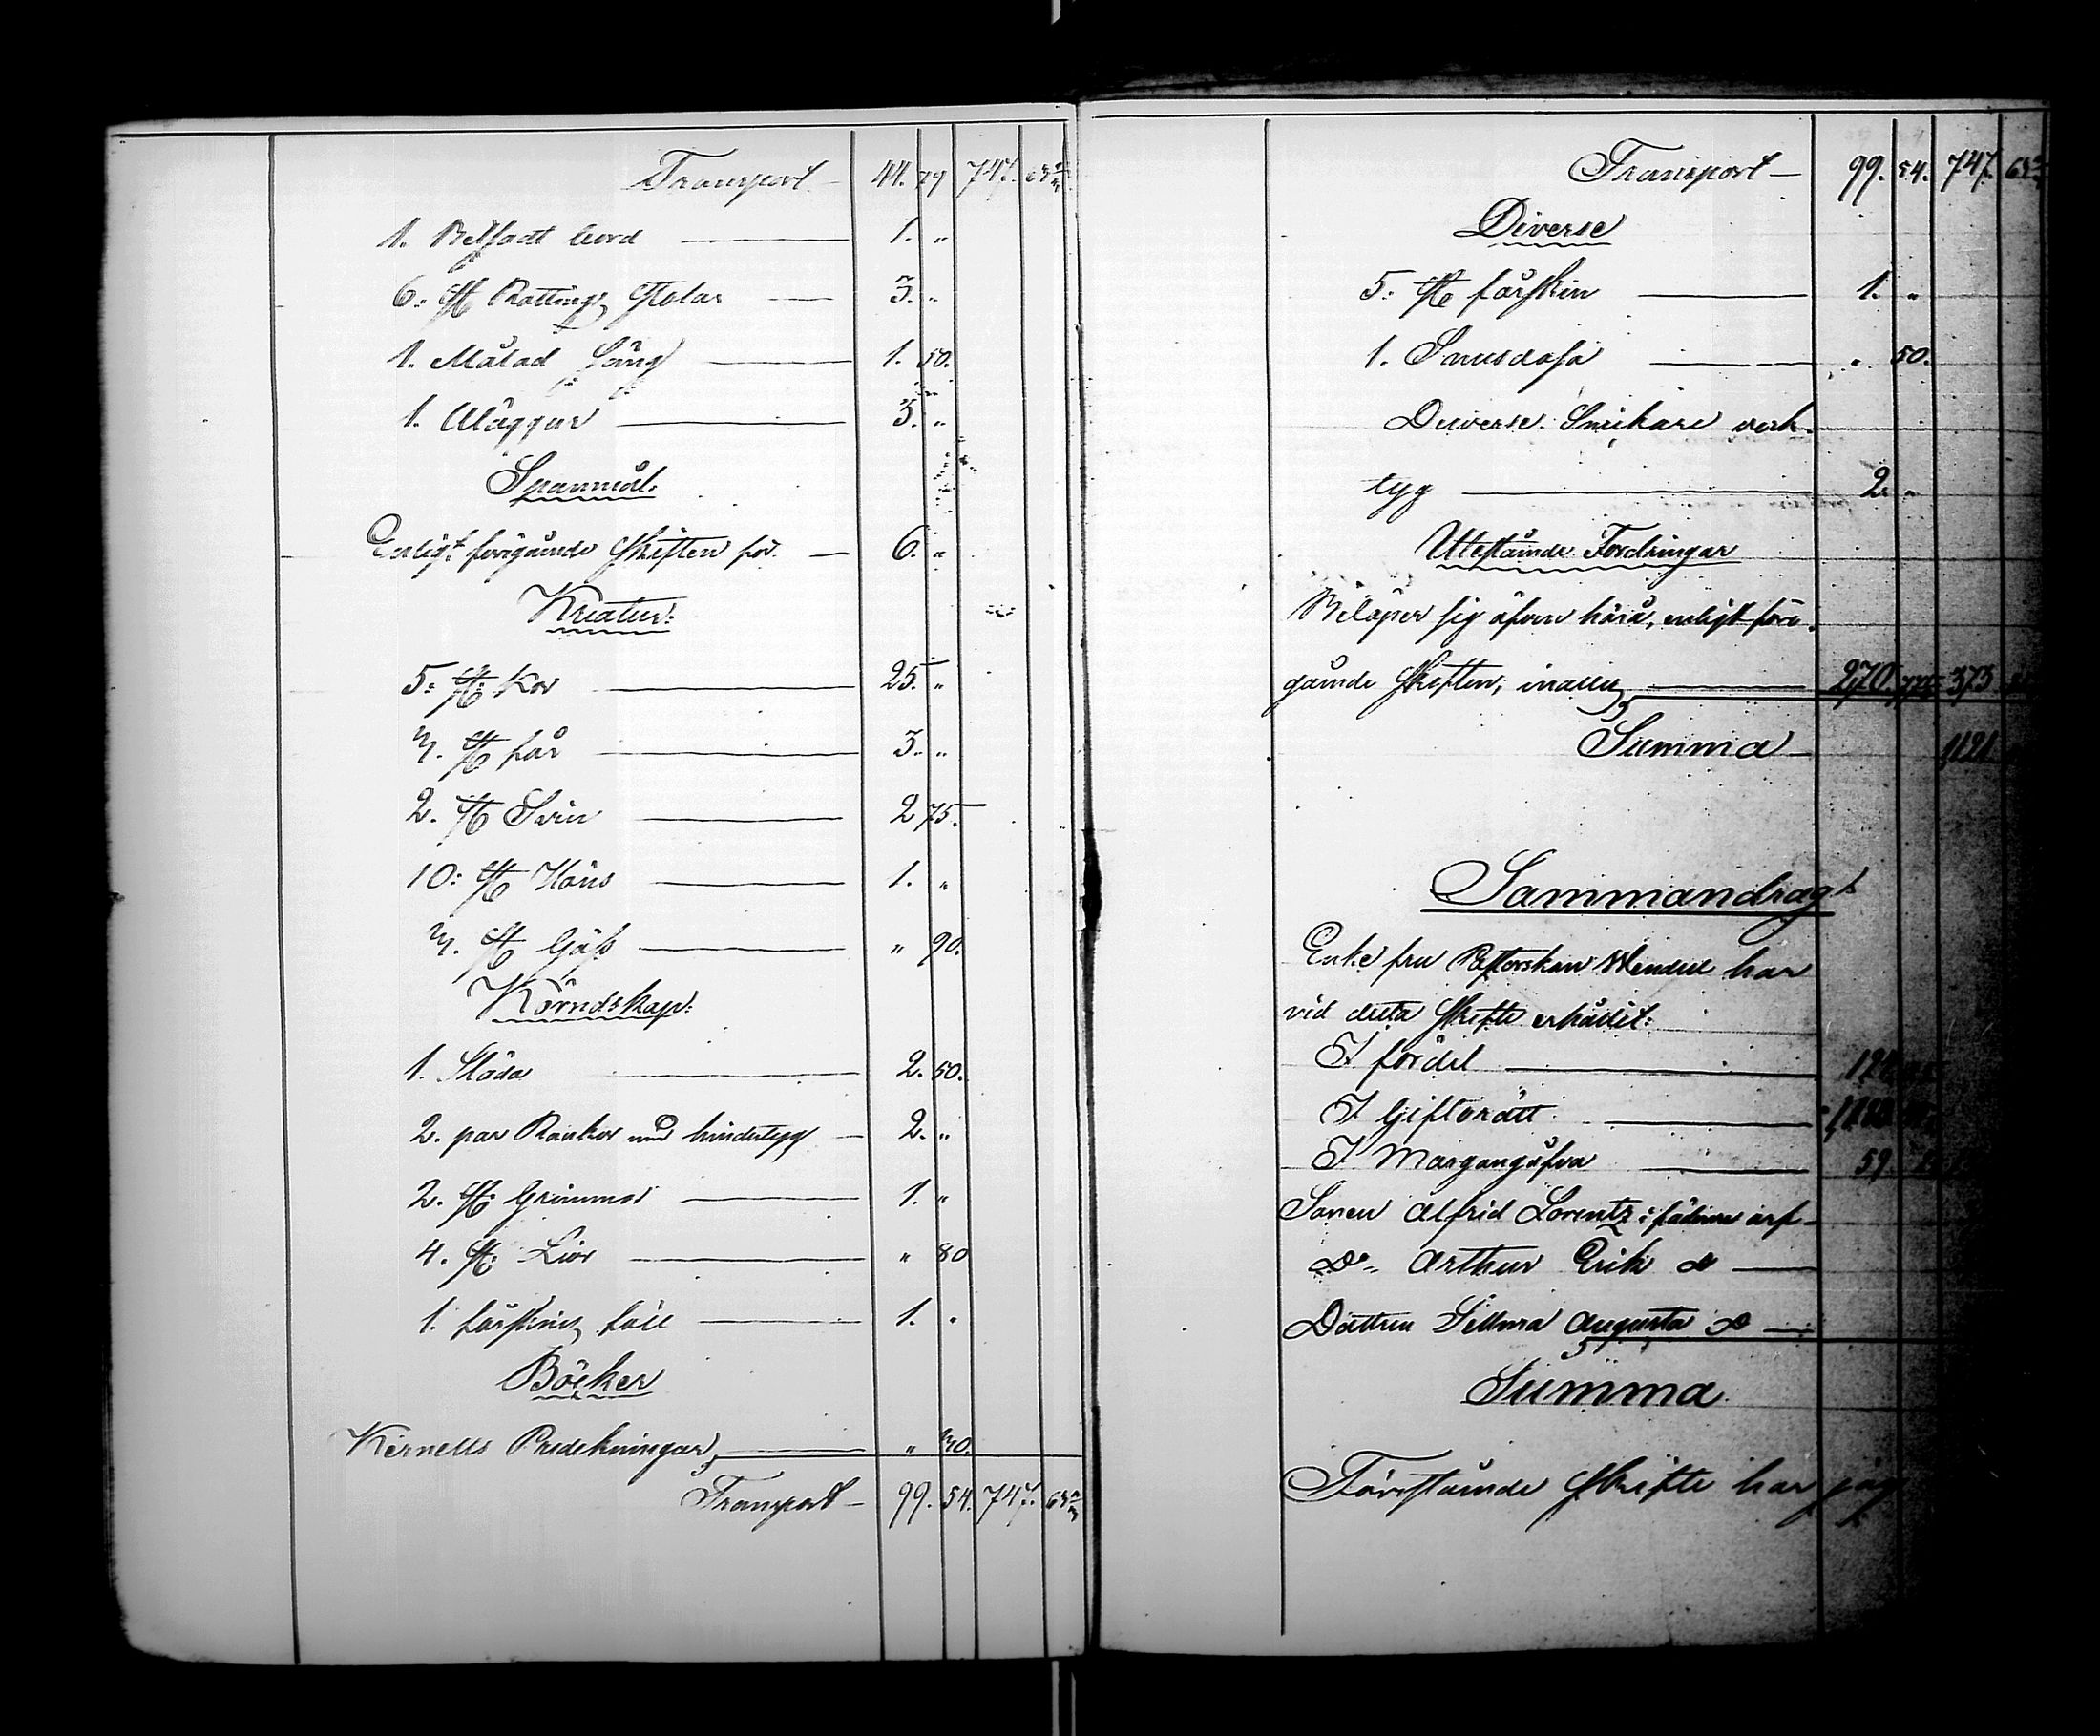 Transport — 44. 79 747. 65
1. Belfadt bord — 1. „
6: St Rottings Stolar — 3. „
1. Målad Säng — 1. 50.
1. Väggur — 3. „
Spannmål:
Enligt föregående Skiften för — 6. „
Kreatur:
5: St: Kor — 25. „
7. St får — 3. „
2. St Svin — 2 75.
10: St Höns — 1. „
3. St Gäss — „ 90.
Körndskap:
1. Släda — 2. 50.
2. par Rankor med hindertyg — 2. „
2. St: Grimmor — 1. „
4. St: Liór — „ 80
1. fårskins fäll — 1. „
Böcker
Kernells Predikningar — „ 30.
Transport — 99. 54. 747. 65
Transport — 99. 54. 747. 65
Diverse
5: St fårskin — 1. „
1. Snusdosa — „ 50.
Diverse Snickare verk-
tyg — 2. „
Utestående Fordringar
Belöper sig äfven härå, enligt före-
gående Skiften, inalles — 270 373
Summa — 1121
Sammandrag
Enke fru Pastorskan Wendell har
vid detta Skifte erhållit:
I fördel —
I Giftorätt —
I Morgongåfva — 59
Sonen Alfrid Lorentz i fäderne arf —
Do „ Arthur Erik do —
Dottren Sellma Augusta do —
Summa
Förestående Skifte har jag